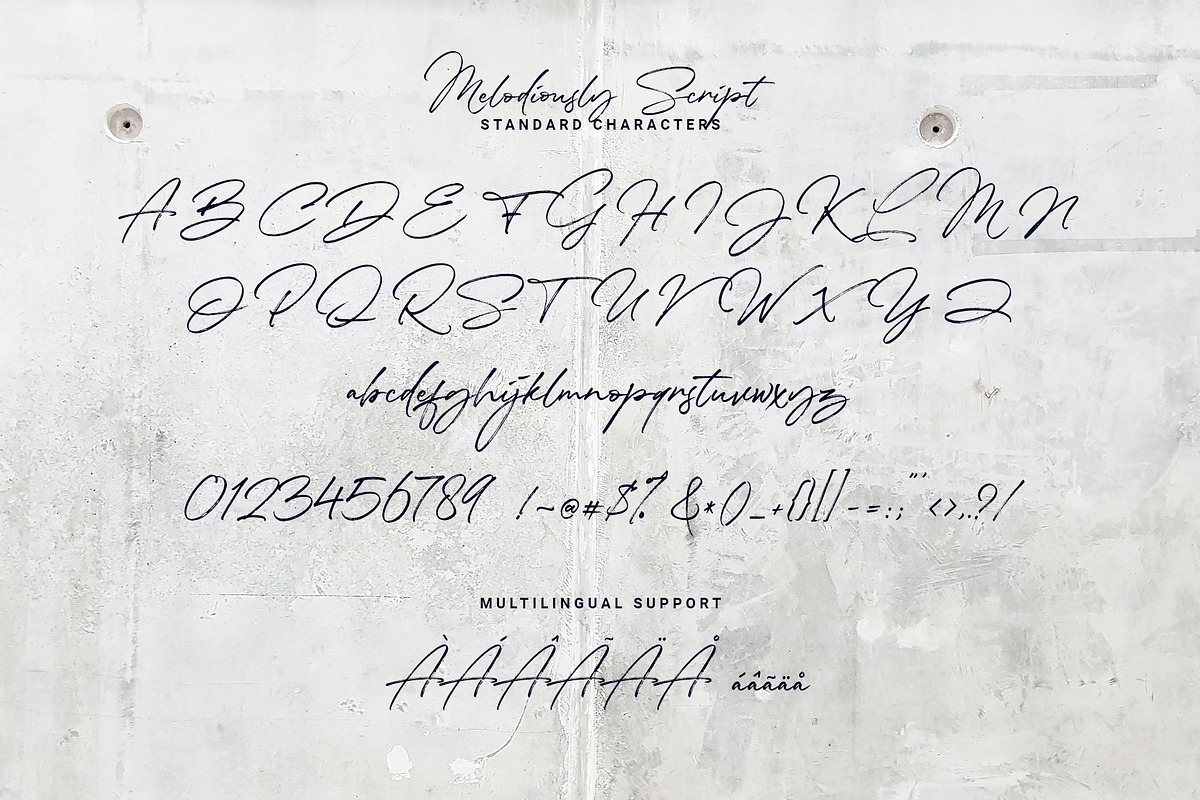 Melodiously Script
STANDARD CHARACTERS
A B C D E F G H I J K L M N
O P Q R S T U V W X Y Z
abcdefghijklmnopqrstuvwxyz
0123456789 !~@#$% &*()_+{}[] -=:; "' <>,.?/
MULTILINGUAL SUPPORT
ÀÁÂÃÄÅ áâãäå